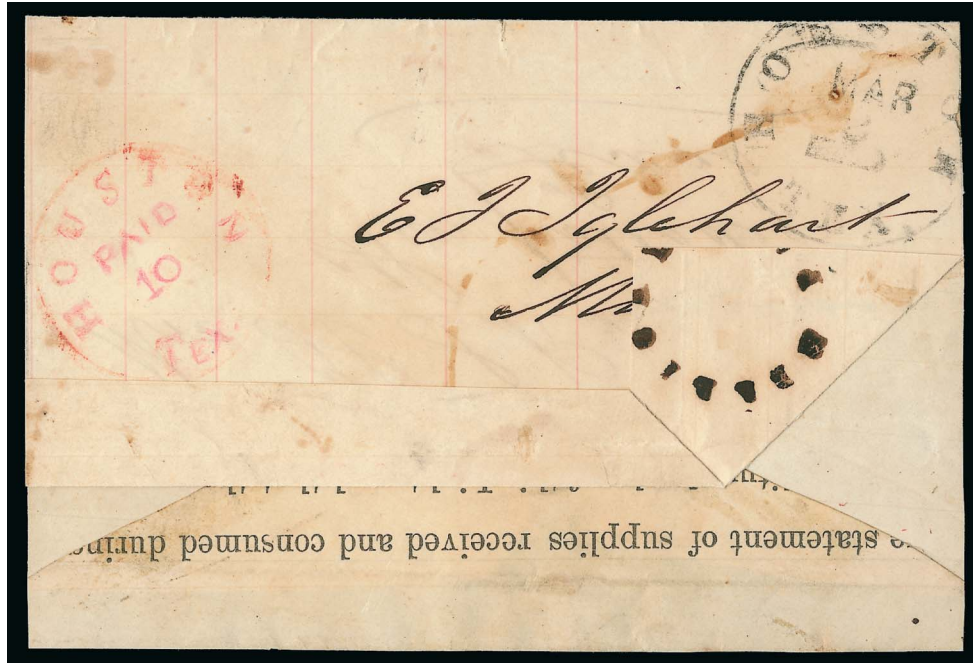 HOUSTON
MAR
HOUSTON
PAID
10
TEX.
E J Iglehart
statement of supplies received and consumed during